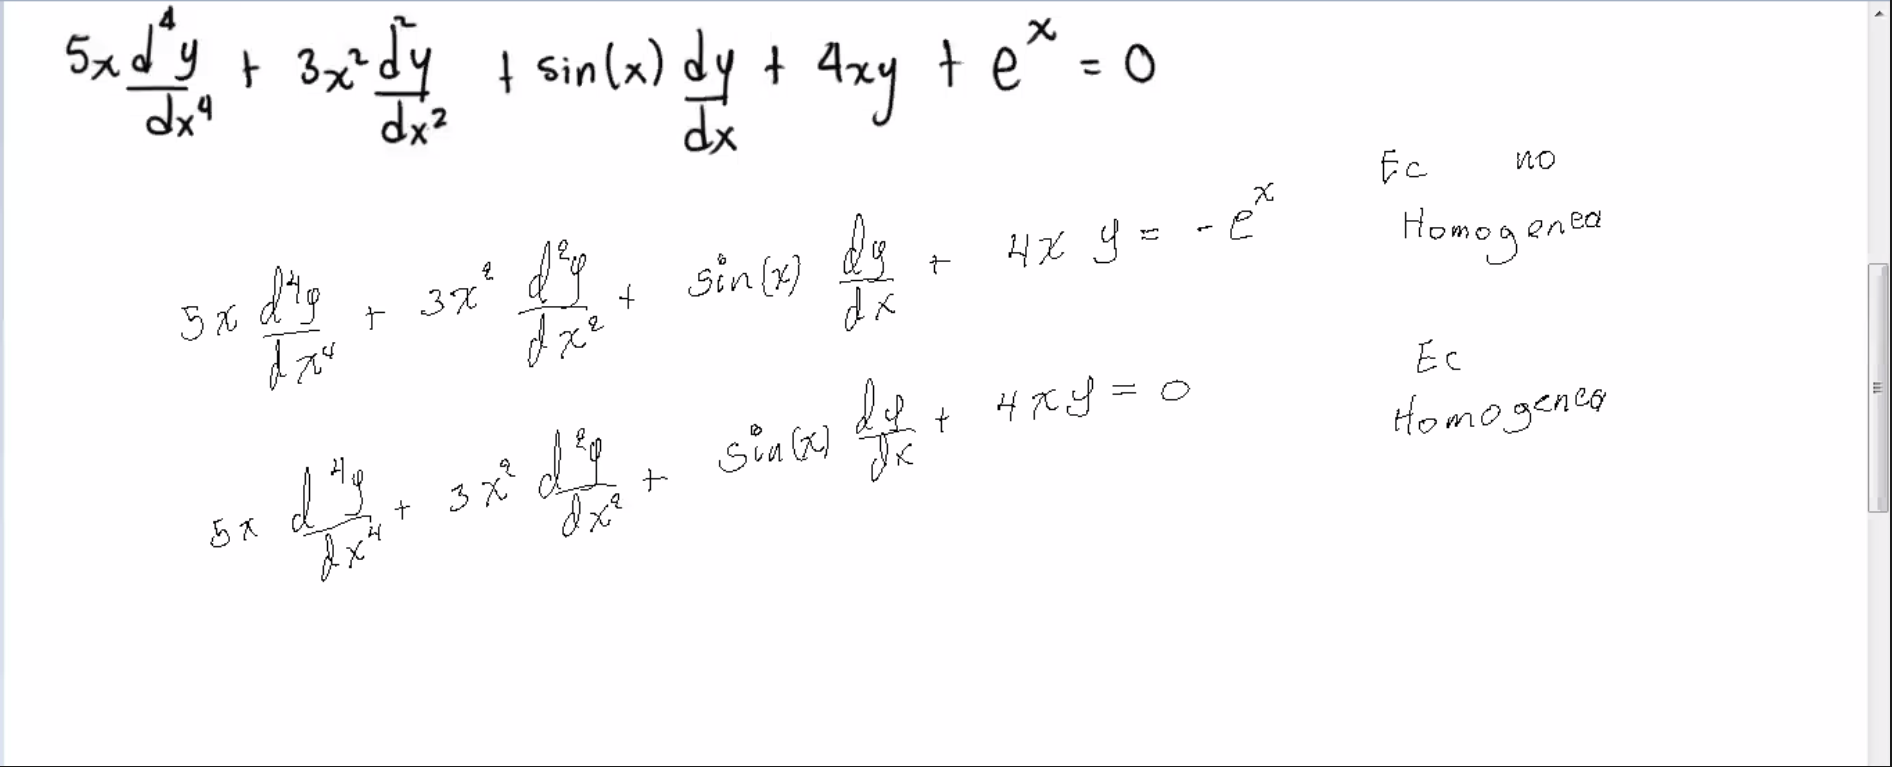 5x d⁴y/dx⁴ + 3x² d²y/dx² + sin(x) dy/dx + 4xy + eˣ = 0
5x d⁴y/dx⁴ + 3x² d²y/dx² + sin(x) dy/dx + 4x y = -eˣ
Ec no
Homogenea
5x d⁴y/dx⁴ + 3x² d²y/dx² + sin(x) dy/dx + 4xy = 0
Ec
Homogenea